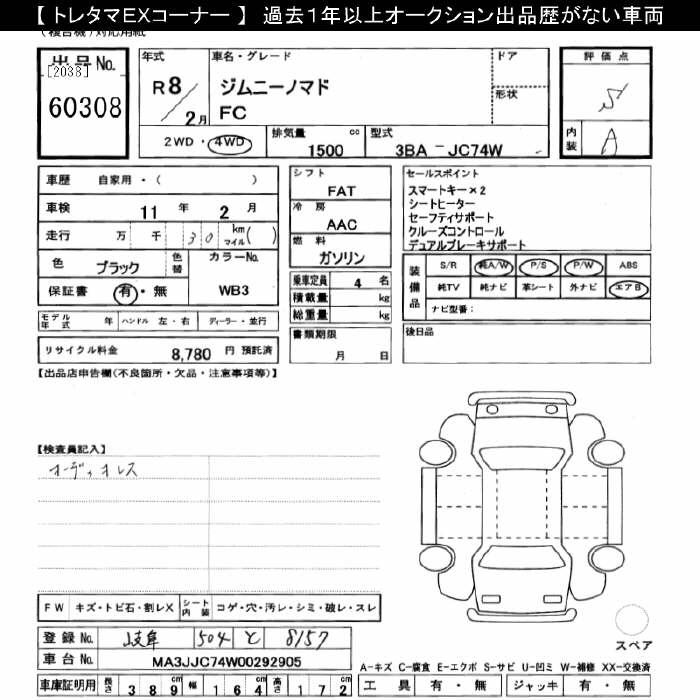 【トレタマEXコーナー】 過去1年以上オークション出品歴がない車両
(複合機)対応用紙
出品No.
[2038]
60308
年式
R8/2月
車名・グレード
ジムニーノマド
FC
ドア
形状
2WD・4WD
排気量 cc
1500
型式
3BA-JC74W
評価点
S
内装
A
車歴 自家用・( )
車検 11年 2月
走行 万 千 30 km マイル( )
色 ブラック 色替 カラーNo.
保証書 有・無 WB3
モデル年式 年 ハンドル 左・右 ディーラー・並行
リサイクル料金 8,780 円 預託済
シフト
FAT
冷房
AAC
燃料
ガソリン
乗車定員 4 名
積載量 kg
総重量 kg
書類期限
月 日
セールスポイント
スマートキー×2
シートヒーター
セーフティサポート
クルーズコントロール
デュアルブレーキサポート
装備品
S/R 純A/W P/S P/W ABS
純TV 純ナビ 革シート 外ナビ エアB
ナビ型番:
後日品
【出品店申告欄(不良箇所・欠品・注意事項等)】
【検査員記入】
オーディオレス
FW キズ・トビ石・割レX シート内装 コゲ・穴・汚レ・シミ・破レ・スレ
登録No. 岐阜 504 と 8157
車台No. MA3JJC74W00292905
車庫証明用 長さ 389cm 幅 164cm 高さ 172cm
スペア
A-キズ C-腐食 E-エクボ S-サビ U-凹ミ W-補修 XX-交換済
工具 有・無 ジャッキ 有・無